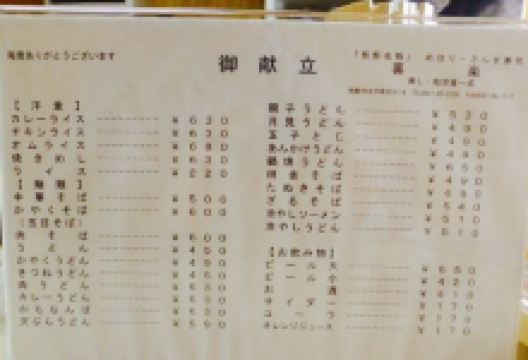 毎度ありがとうございます
御献立
【洋食】
カレーライス ¥630
チキンライス ¥630
オムライス ¥680
焼きめし ¥630
ライス ¥220
【麺類】
中華そば ¥500
かやくそば ¥600
(五目そば)
そば ¥600
うどん ¥450
かやくうどん ¥450
きつねうどん ¥450
肉うどん
カレーうどん ¥530
かちんうどん
天ぷらうどん ¥590
親子うどん ¥530
月見うどん ¥490
玉子とじ ¥490
あんかけうどん ¥490
鍋焼うどん
そば ¥490
たぬきそば
ざるそば ¥540
冷やしソーメン ¥510
冷やしうどん ¥510
【お飲み物】
ビール大 ¥650
ビール小 ¥420
お酒 ¥410
サイダー ¥170
コーラ ¥170
オレンジジュース ¥170